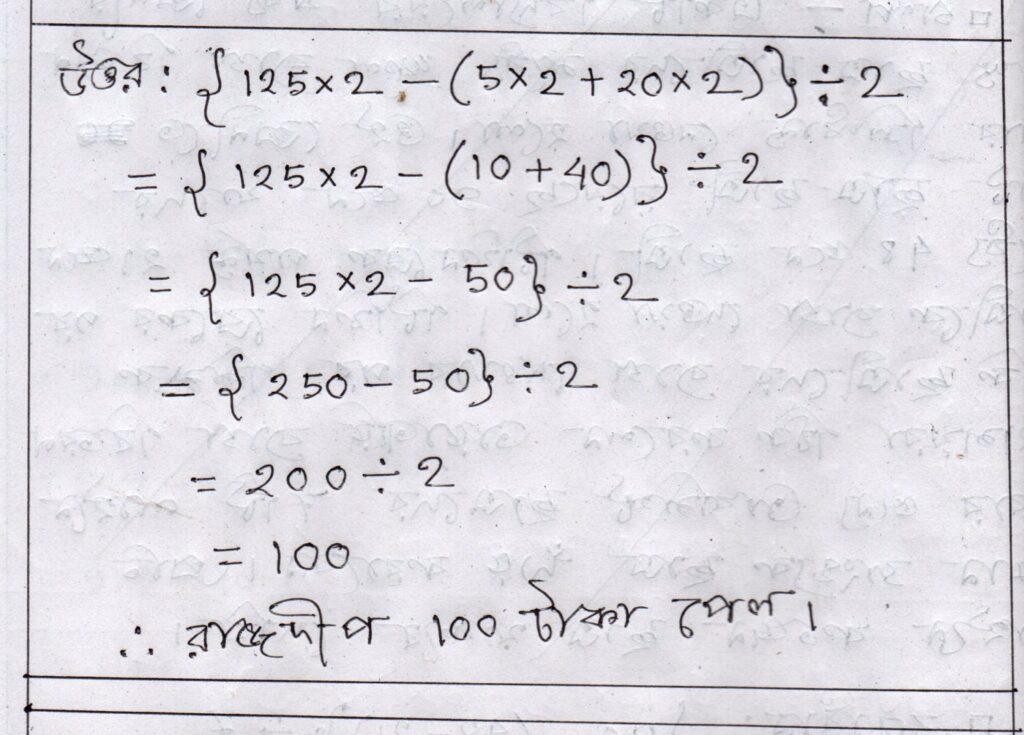 উত্তর : {125×2 - (5×2 + 20×2)} ÷ 2
= {125×2 - (10 + 40)} ÷ 2
= {125×2 - 50} ÷ 2
= {250 - 50} ÷ 2
= 200 ÷ 2
= 100
∴ রাজদীপ 100 টাকা পেল।